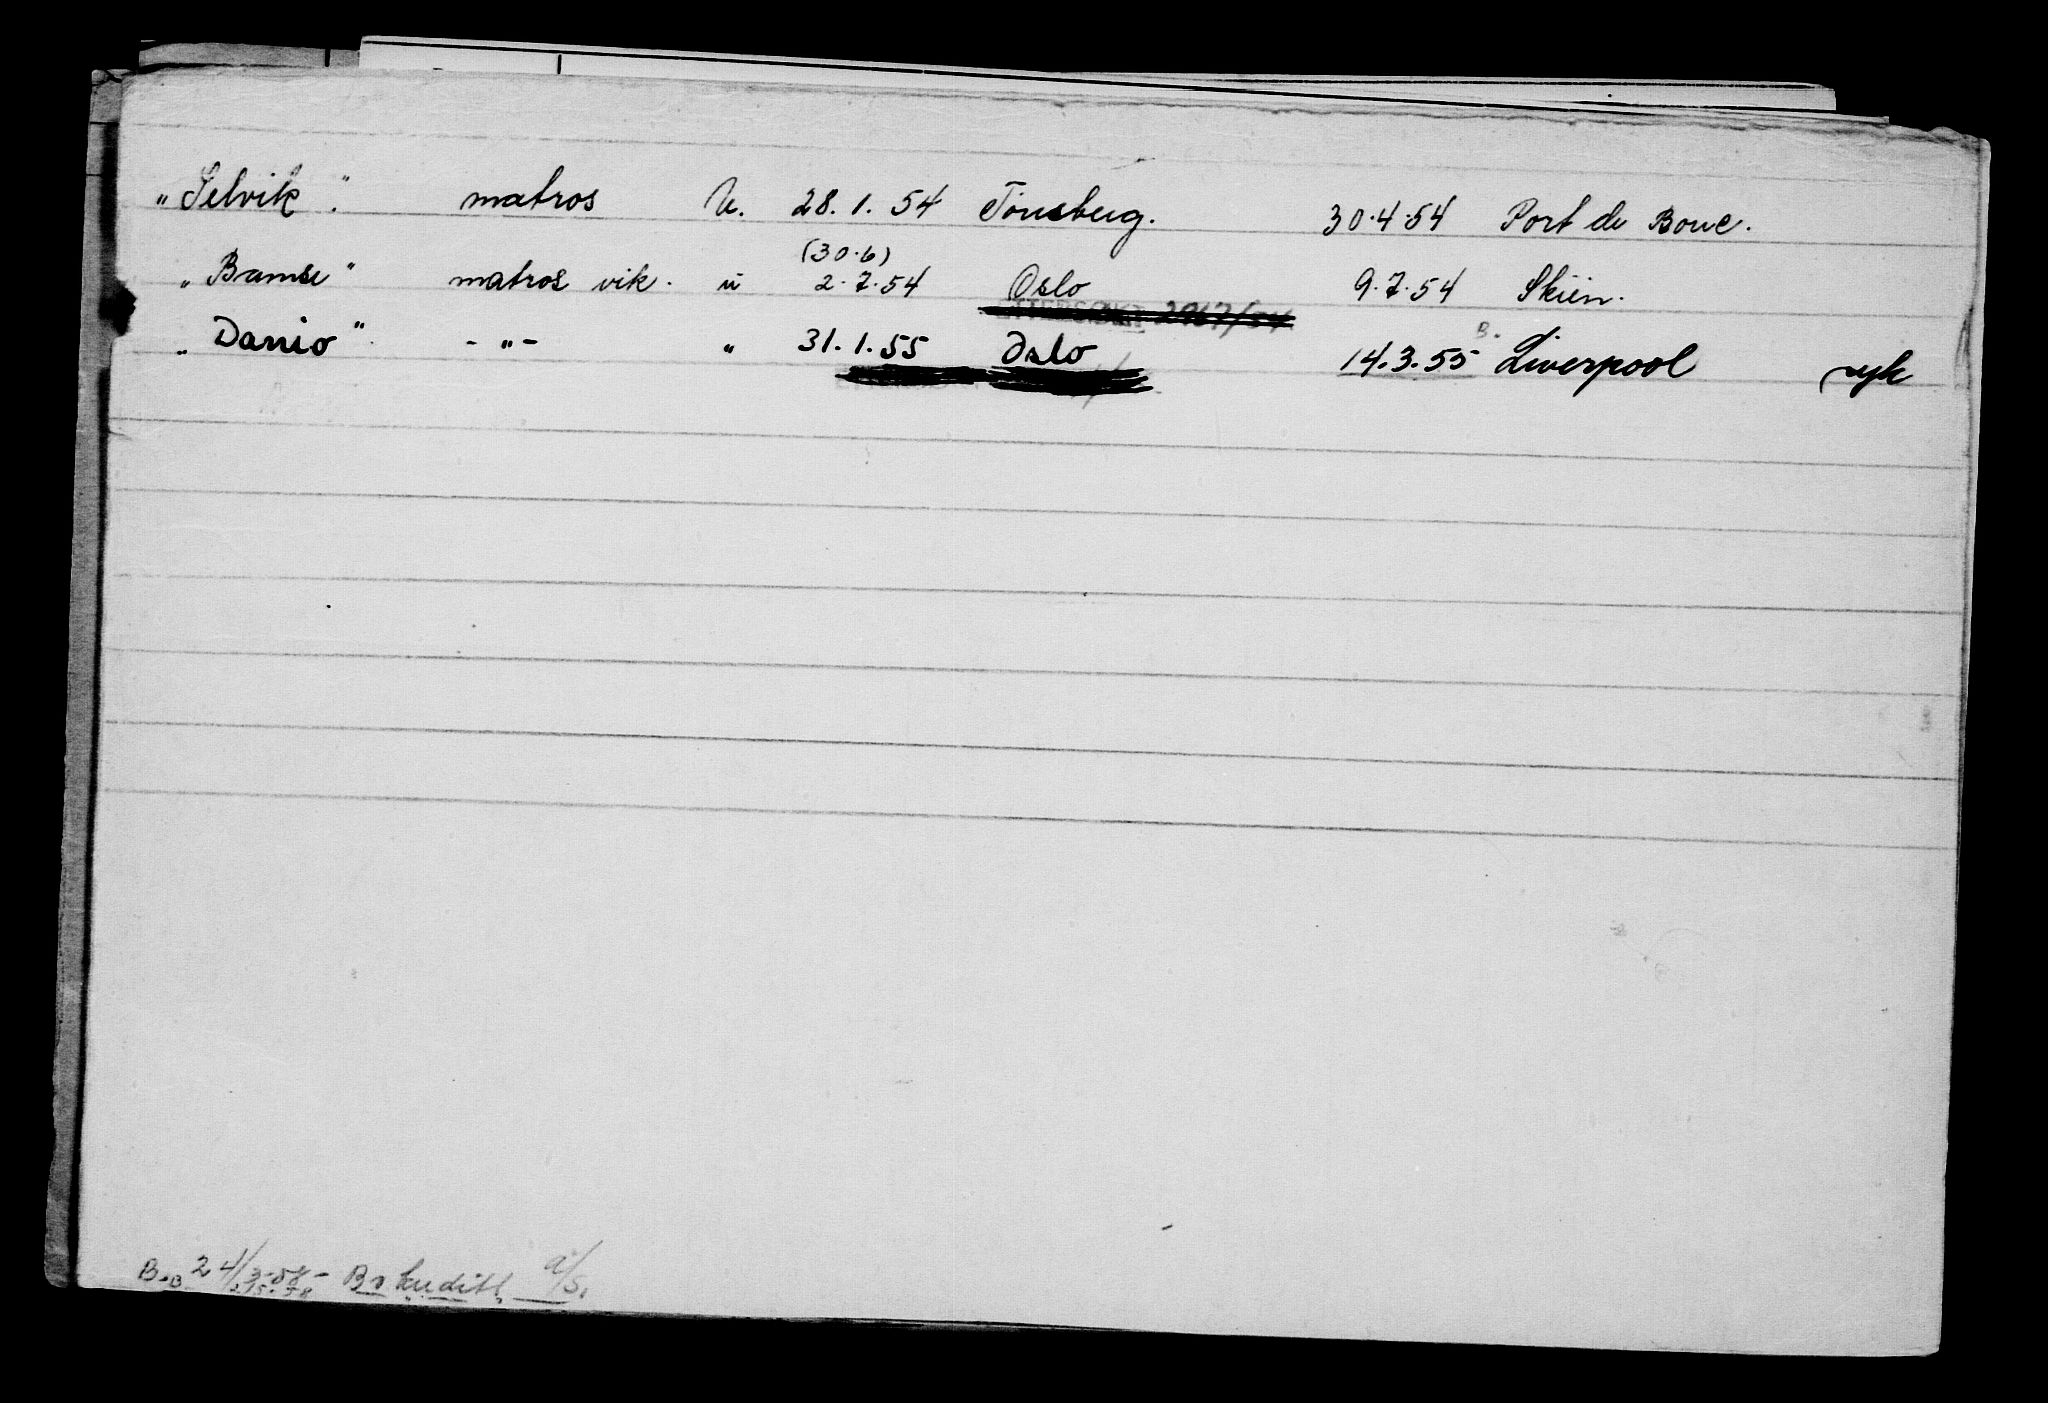 „Selvik." matros U. 28.1.54 Tönsberg. 30.4.54 Port de Bouc.
(30.6)
„Bamse" matros vik. u 2.7.54 Oslo 9.7.54 Skien.
2967/54
B.
„Danio" -"- " 31.1.55 Oslo 14.3.55 Liverpool syk
B.B 24/3-58- Bv kreditt a/s.